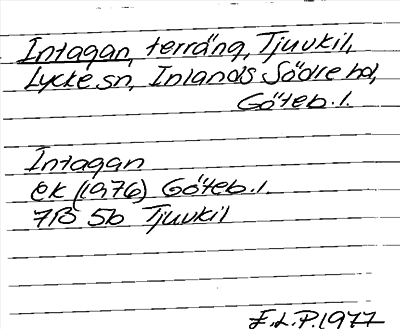 Intagan, terräng, Tjuvkil,
Lycke sn, Inlands Södre hd,
Göteb. l.
Intagan
ek (1976) Göteb. l.
7B 5b Tjuvkil
E.L.P. 1977